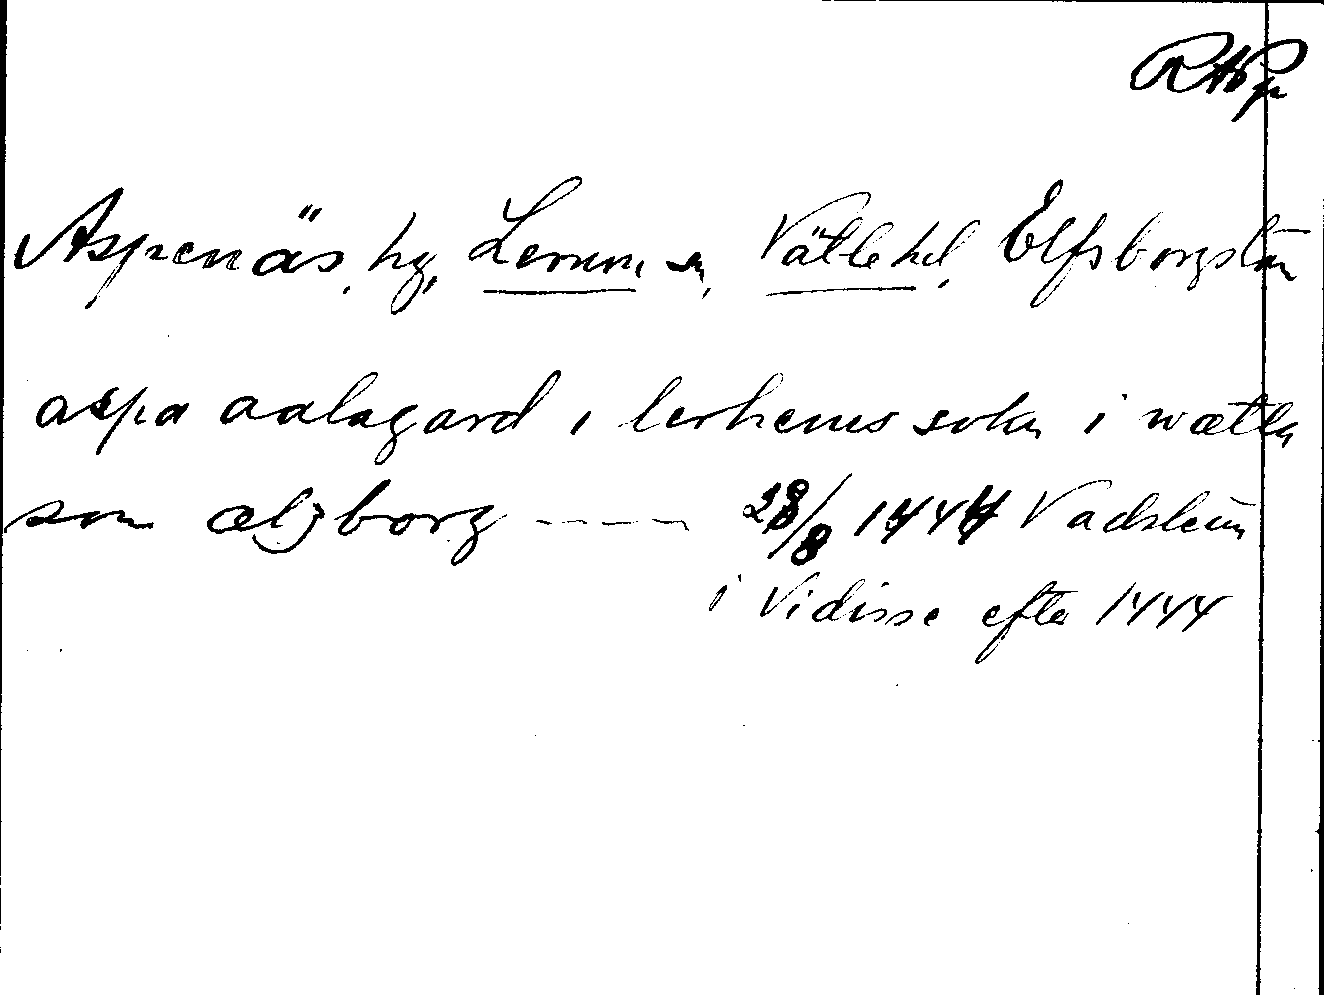 RAp
Aspenäs, hg, Lerums sn, Vätle hd, Elfsborgs län
aspa aalagard i lerhems sokn i wætla
som ælzborg ---- 28/8 1444 Vadstena
i Vidisse efter 1444